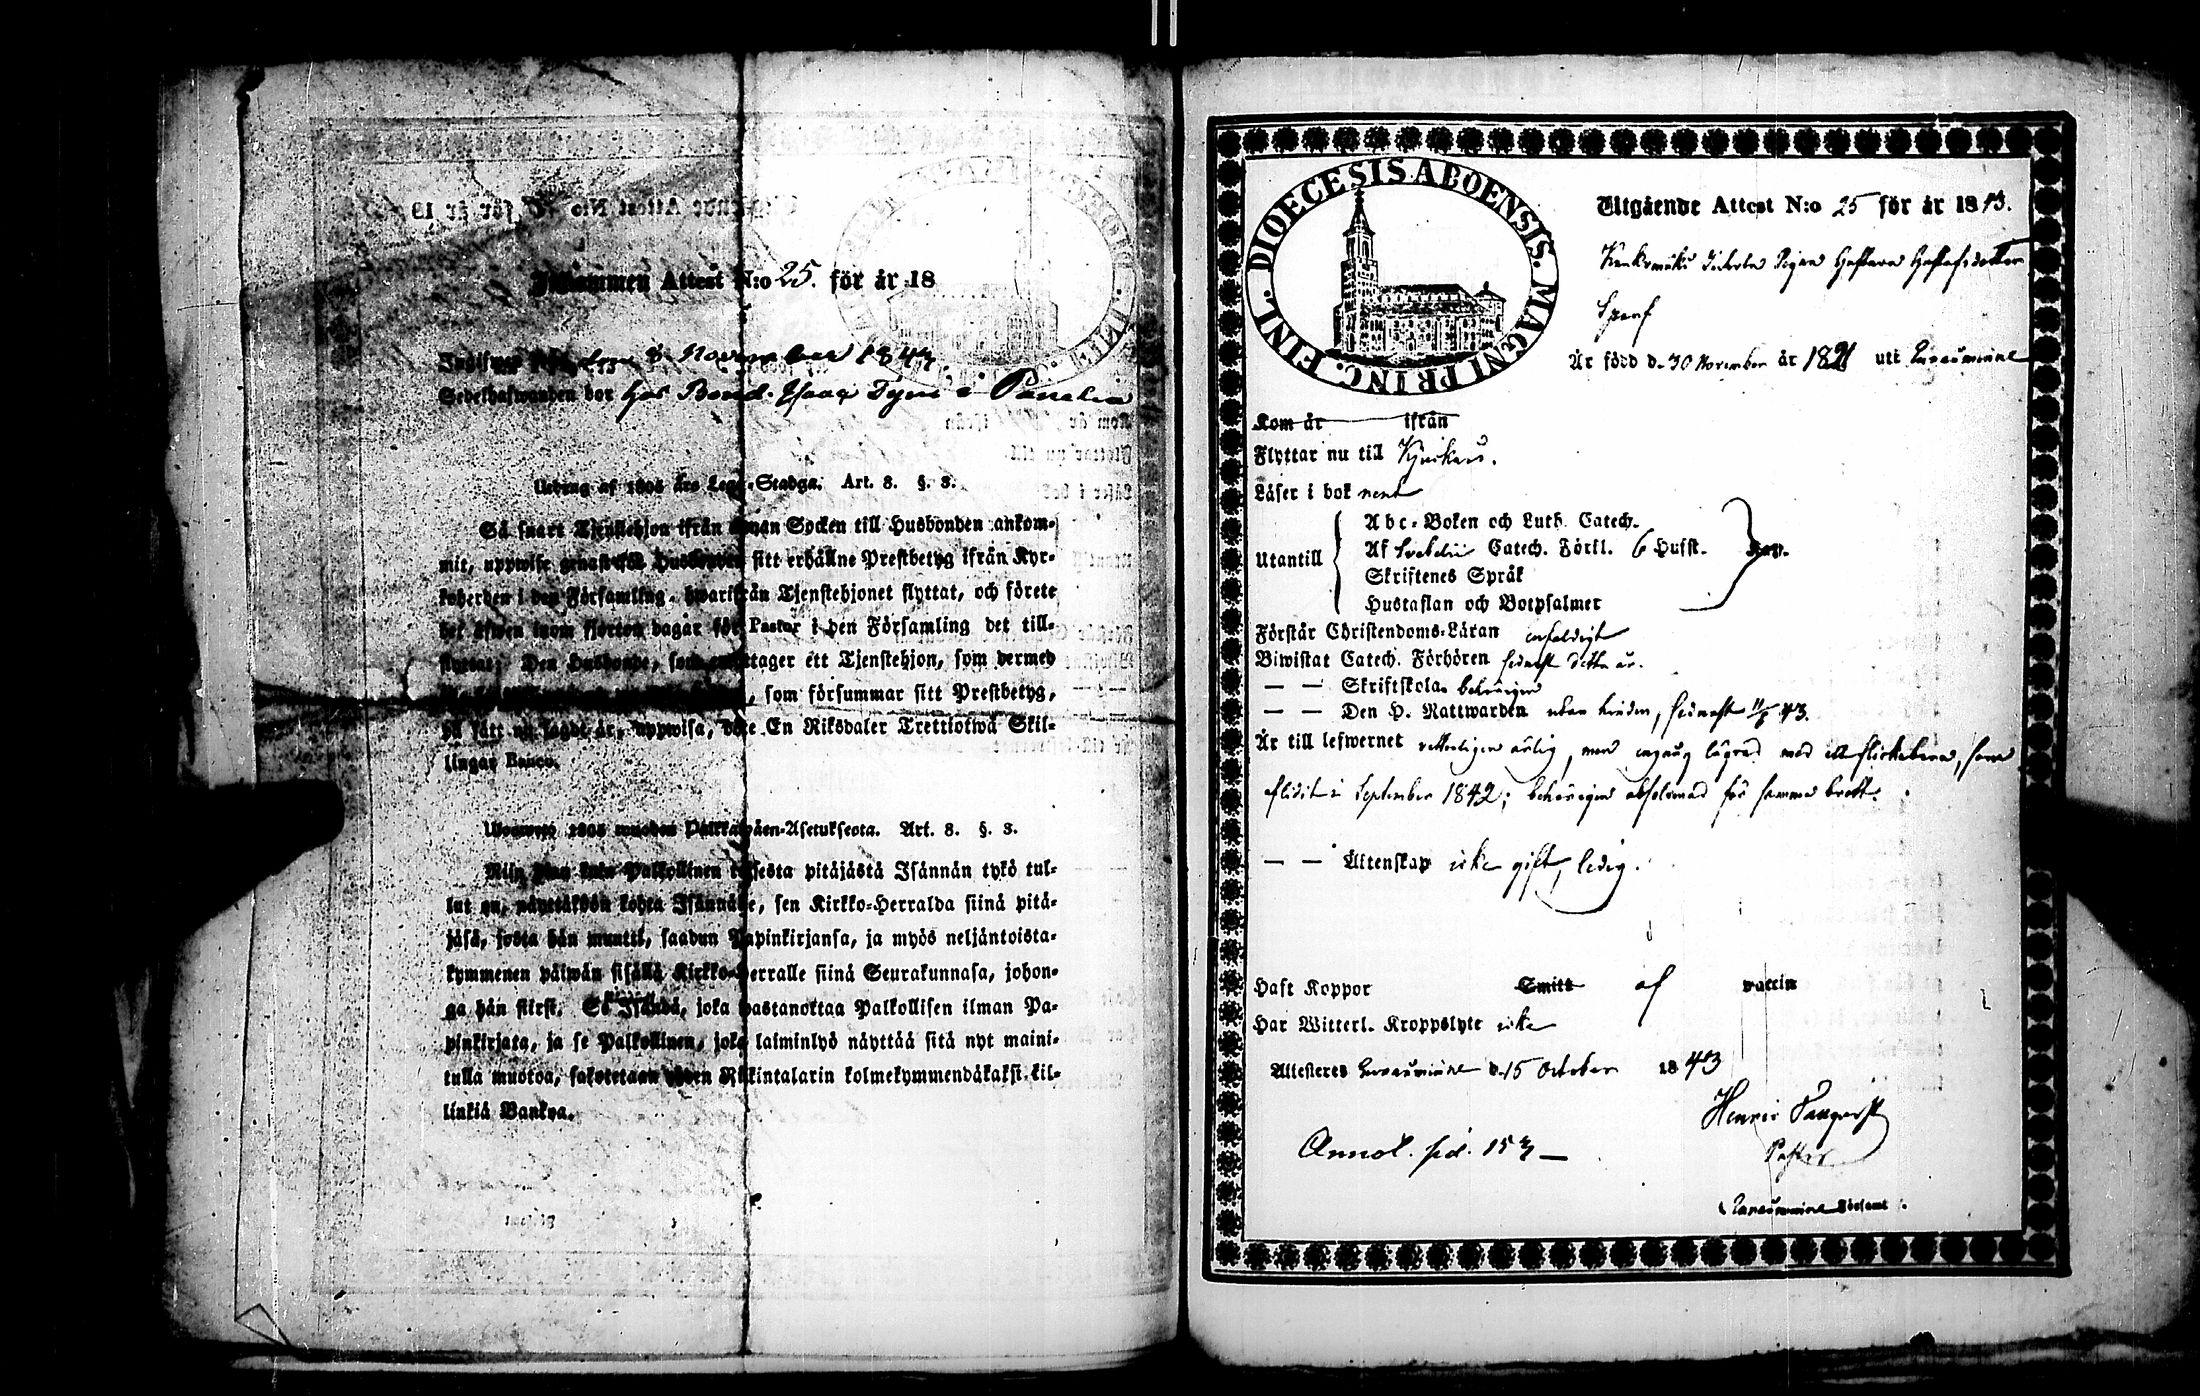 Inkommen Attest N:o 25. för år 18
den 8. November 1843.
Sedelhafwanden bor hos Bond. Isaac Tyni i Panelia
Utdrag af 1805 års Lego-Stadga. Art. 8. §. 3.
Så snart Tjenstehjon ifrån annan Socken till Husbonden ankom-
mit, uppwise genast för Husbonden sitt erhållne Prestbetyg ifrån Kyr-
koherden i den Församling, hwarifrån Tjenstehjonet flyttat, och förete
det äfwen inom fjorton dagar för Pastor i den Församling det till-
flyttat. Den Husbonde, som emottager ett Tjenstehjon, som dermed
, som försummar sitt Prestbetyg,
på sätt nu sagdt är, uppwisa, böte En Riksdaler Trettiotwå Skil-
lingar Banco.
Ulosweto 1805 wuoden Palkkawäen-Asetuksesta. Art. 8. §. 3.
Niin pian kuin Palkollinen toisesta pitäjästä Isännän tykö tul-
lut on, näyttäköön kohta Isännälle, sen Kirkko-Herralda siinä pitä-
jäsä, josta hän muutti, saadun Papinkirjansa, ja myös neljäntoista-
kymmenen päiwän sisällä Kirkko-Herralle siinä Seurakunnasa, johon-
ga hän siirsi. Se Isändä, joka wastanottaa Palkollisen ilman Pa-
pinkirjata, ja se Palkollinen, joka laiminlyö näyttää sitä nyt maini-
tulla muotoa, sakotetaan yhden Riikintalarin kolmekymmendäkaksi kil-
linkiä Bankoa.
DIOECESIS ABOENSIS. MAGNI PRINC. FINL.
Utgående Attest N:o 25 för år 1843.
Pigan Gustava Gustafsdotter
Är född d. 30 November år 1821 uti Euraåminne
Kom år ifrån
Flyttar nu till Kjukais.
Läser i bok rent
Abc-Boken och Luth. Catech.
Utantill
Af Svebelii Catech. Förkl. 6 Hufst.
Skriftenes Språk
Hustaflan och Botpsalmer
Förstår Christendoms-Läran enfaldigt
Biwistat Catech. Förhören sednast detta år.
— — Skriftskola behörigen
— — Den H. Nattwarden utan hinder, sednast 11/6 43.
Är till lefwernet wetterligen ärlig, men engång lägrad med ett flickebarn, som
aflidit i September 1842; behörigen absolverad för samma brott.
— — Äktenskap icke gift, ledig.
Haft Koppor Smitt af vaccin
Har Witterl. Kroppslyte icke
Attesteres Euraåminne d. 15 October 1843
Henric
Pastor
Annot. sid. 153 —
i Euraåminne Församl.